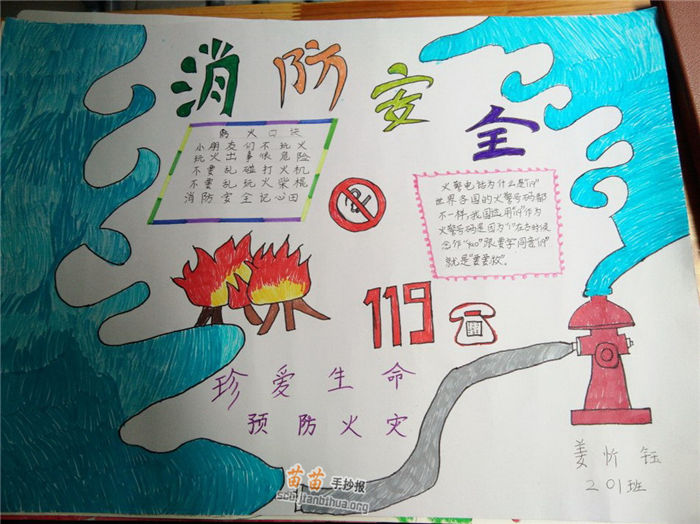 消防安全
防火口诀
小朋友们不玩火
玩火出事很危险
不要乱碰打火机
不要乱玩火柴棍
消防安全记心田
火警电话为什么是"119"
世界各国的火警号码都
不一样,我国选用"119"作为
火警号码是因为"1"在古时候
念作"yāo"跟要字同音"119"
就是"要要救"。
119
珍爱生命
预防火灾
姜忻钰
201班
苗苗手抄报
schijianbihua.org